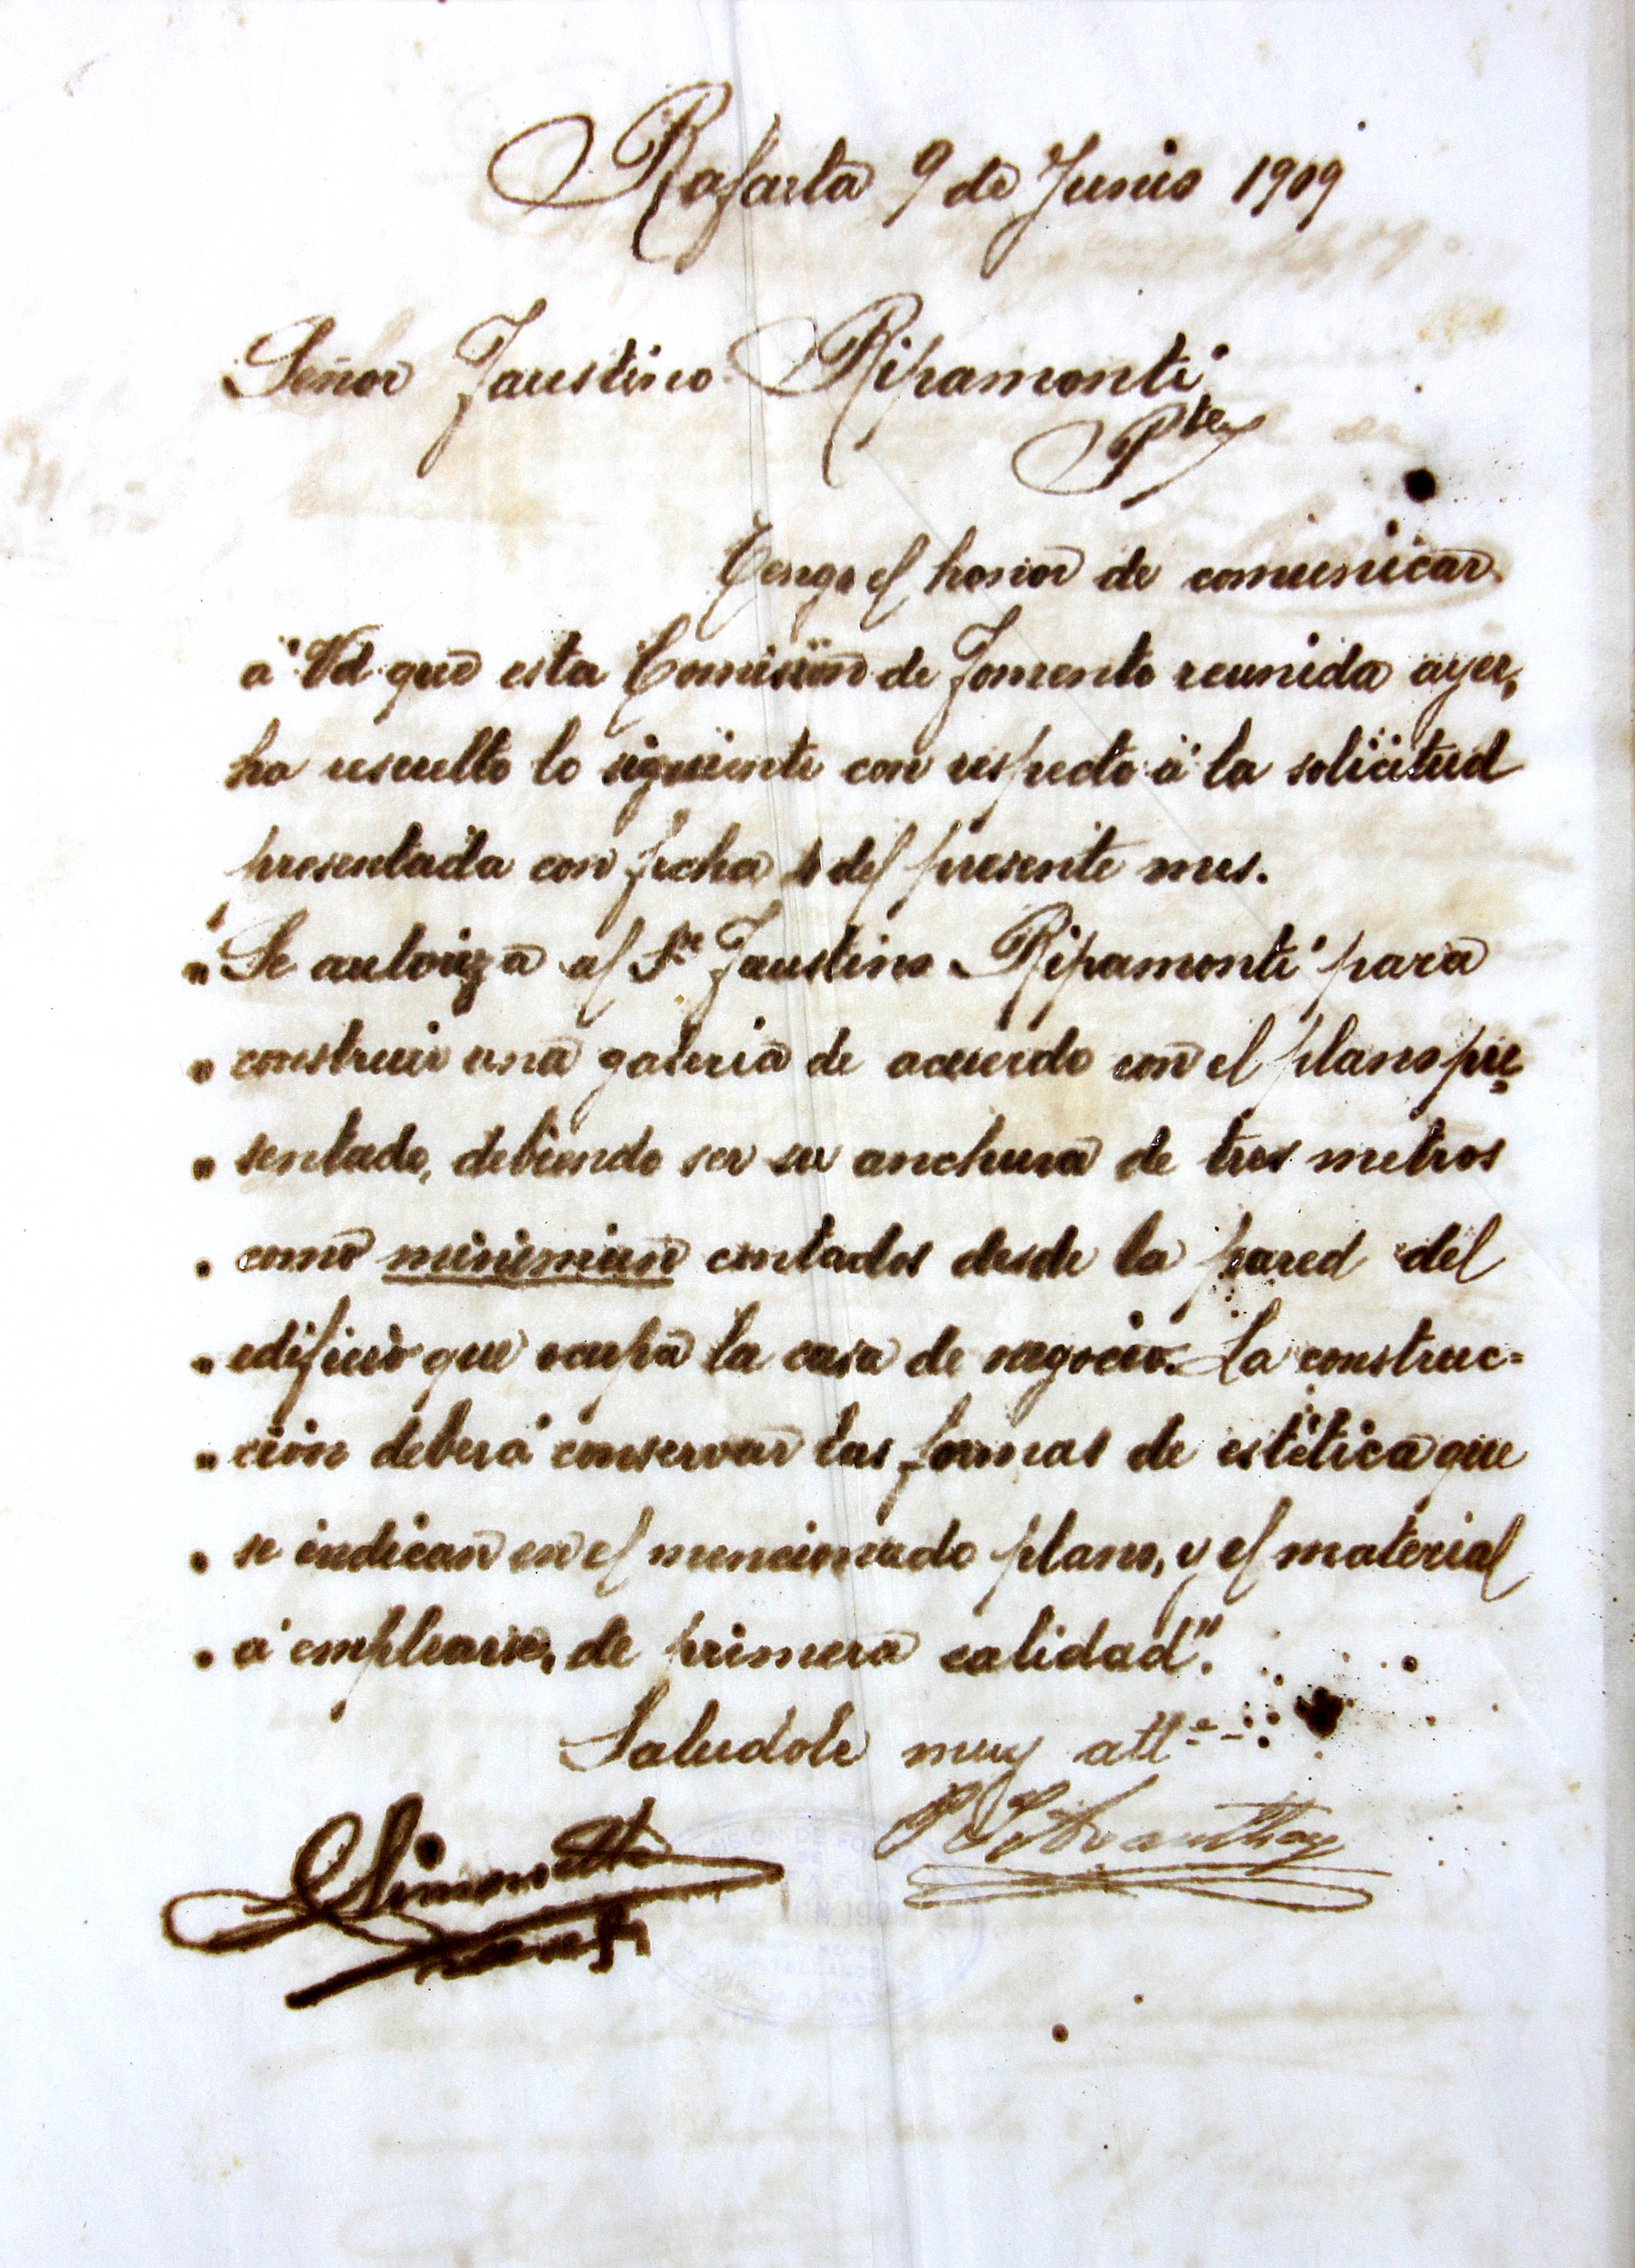 Rafaela 9 de Junio 1909
Señor Faustino Ripamonti
Pte
Tengo el honor de comunicar
á Vd que esta Comision de Fomento reunida ayer,
ha resuelto lo siguiente con respecto á la solicitud
presentada con fecha 4 del presente mes.
" Se autoriza al Sr Faustino Ripamonti para
" construir una galeria de acuerdo con el plano pre=
" sentado, debiendo ser su anchura de tres metros
" como minimun contados desde la pared del
" edificio que ocupa la casa de negocio. La construc=
" ción deberá conservar las formas de estética que
" se indican en el mencionado plano, y el material
" á emplearse, de primera calidad".
Saludole muy atte
Simonetta
COMISION DE FOMENTO
DE
RAFAELA
JUN. 190
DEPARTAMENTO
CASTELLANOS